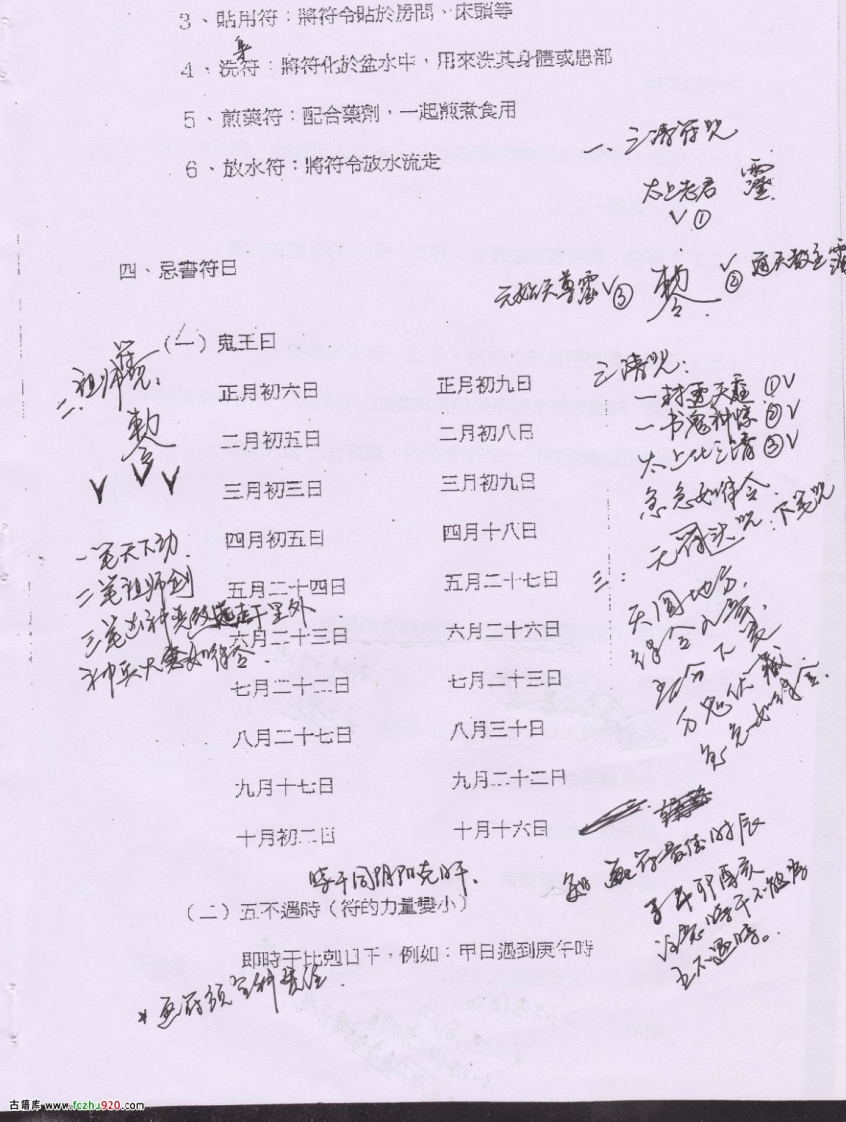 3、貼用符：將符令貼於房間、床頭等
4、洗符：將符化於盆水中，用來洗其身體或患部
5、煎藥符：配合藥劑，一起煎煮食用
6、放水符：將符令放水流走
一、三清符咒
太上老君 靈
V ①
四、忌書符日
元始天尊靈 V ③
勅令
V ② 通天教主靈
（一）鬼王日
二、祖师咒：
勅令
V V V
正月初六日 正月初九日
二月初五日 二月初八日
三月初三日 三月初九日
四月初五日 四月十八日
五月二十四日 五月二十七日
六月二十三日 六月二十六日
七月二十二日 七月二十三日
八月二十七日 八月三十日
九月十七日 九月二十二日
十月初二日 十月十六日
一笔天下动
二笔祖师剑
三笔
千里外
神兵火急如律令
三清咒：
①V
一书鬼神惊 ②V
太上化三清 ③V
急急如律令
三：
下笔咒
天圆地方
万鬼伏藏
急急如律令
時干同阴阳克日干
（二）五不遇時（符的力量變小）
即時干比剋日干，例如：甲日遇到庚午時
画符最佳时辰
子午卯酉亥
注意時干不能为
五不遇時。
古籍库 www.fczhu920.com